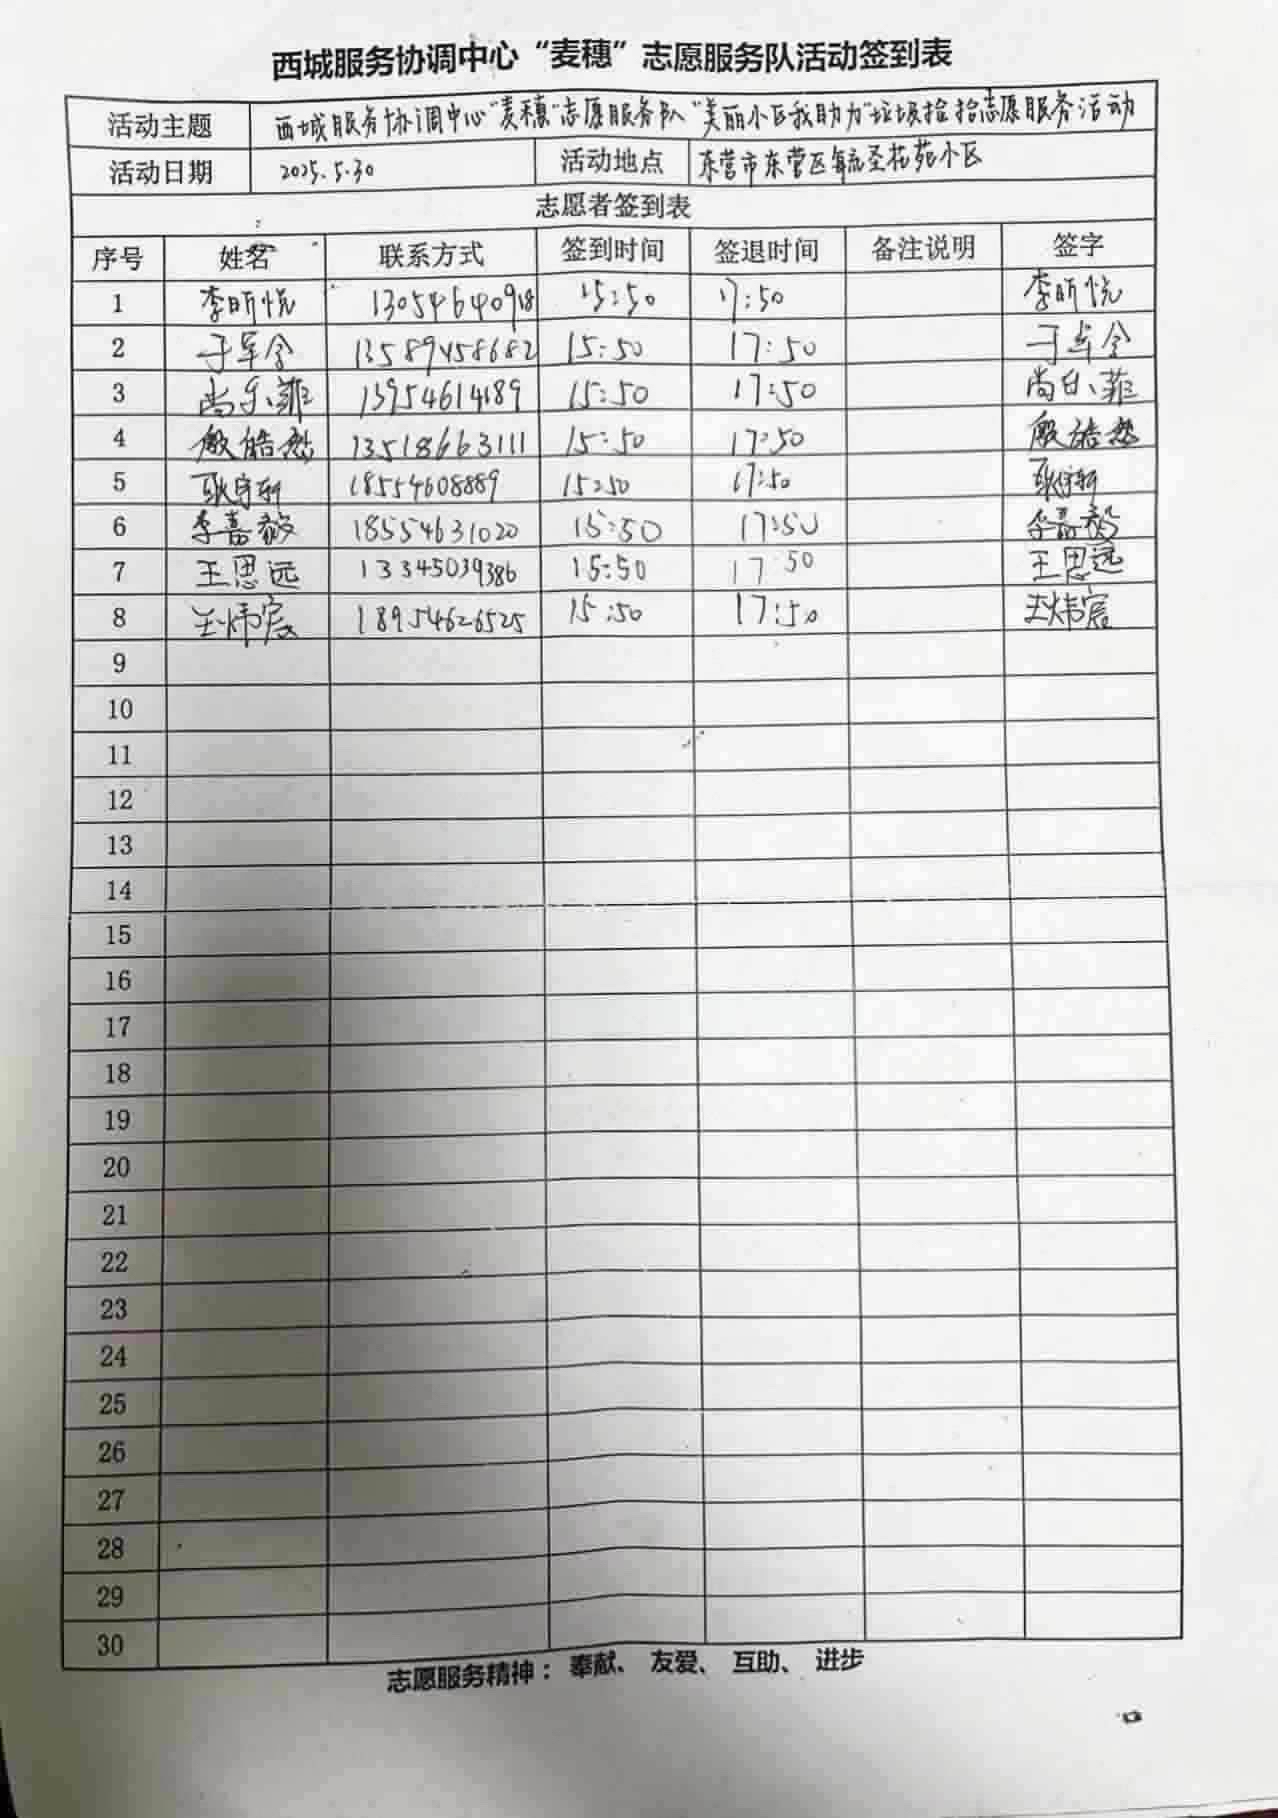 西城服务协调中心“麦穗”志愿服务队活动签到表
活动主题 西城服务协调中心“麦穗”志愿服务队“美丽小区我助力”垃圾捡拾志愿服务活动
活动日期 2025.5.30 活动地点 东营市东营区毓圣花苑小区
志愿者签到表
序号 姓名 联系方式 签到时间 签退时间 备注说明 签字
1 李昕悦 13054640918 15:50 17:50 李昕悦
2 于军令 13589458682 15:50 17:50 于军令
3 尚乐菲 13954614189 15:50 17:50 尚乐菲
4 殷皓然 13518663111 15:50 17:50 殷皓然
5 耿宇轩 18554608889 15:50 17:50 耿宇轩
6 李嘉毅 18554631020 15:50 17:50 李嘉毅
7 王思远 13345039386 15:50 17:50 王思远
8 王炜宸 18954626525 15:50 17:50 王炜宸
9
10
11
12
13
14
15
16
17
18
19
20
21
22
23
24
25
26
27
28
29
30
志愿服务精神：奉献、友爱、互助、进步